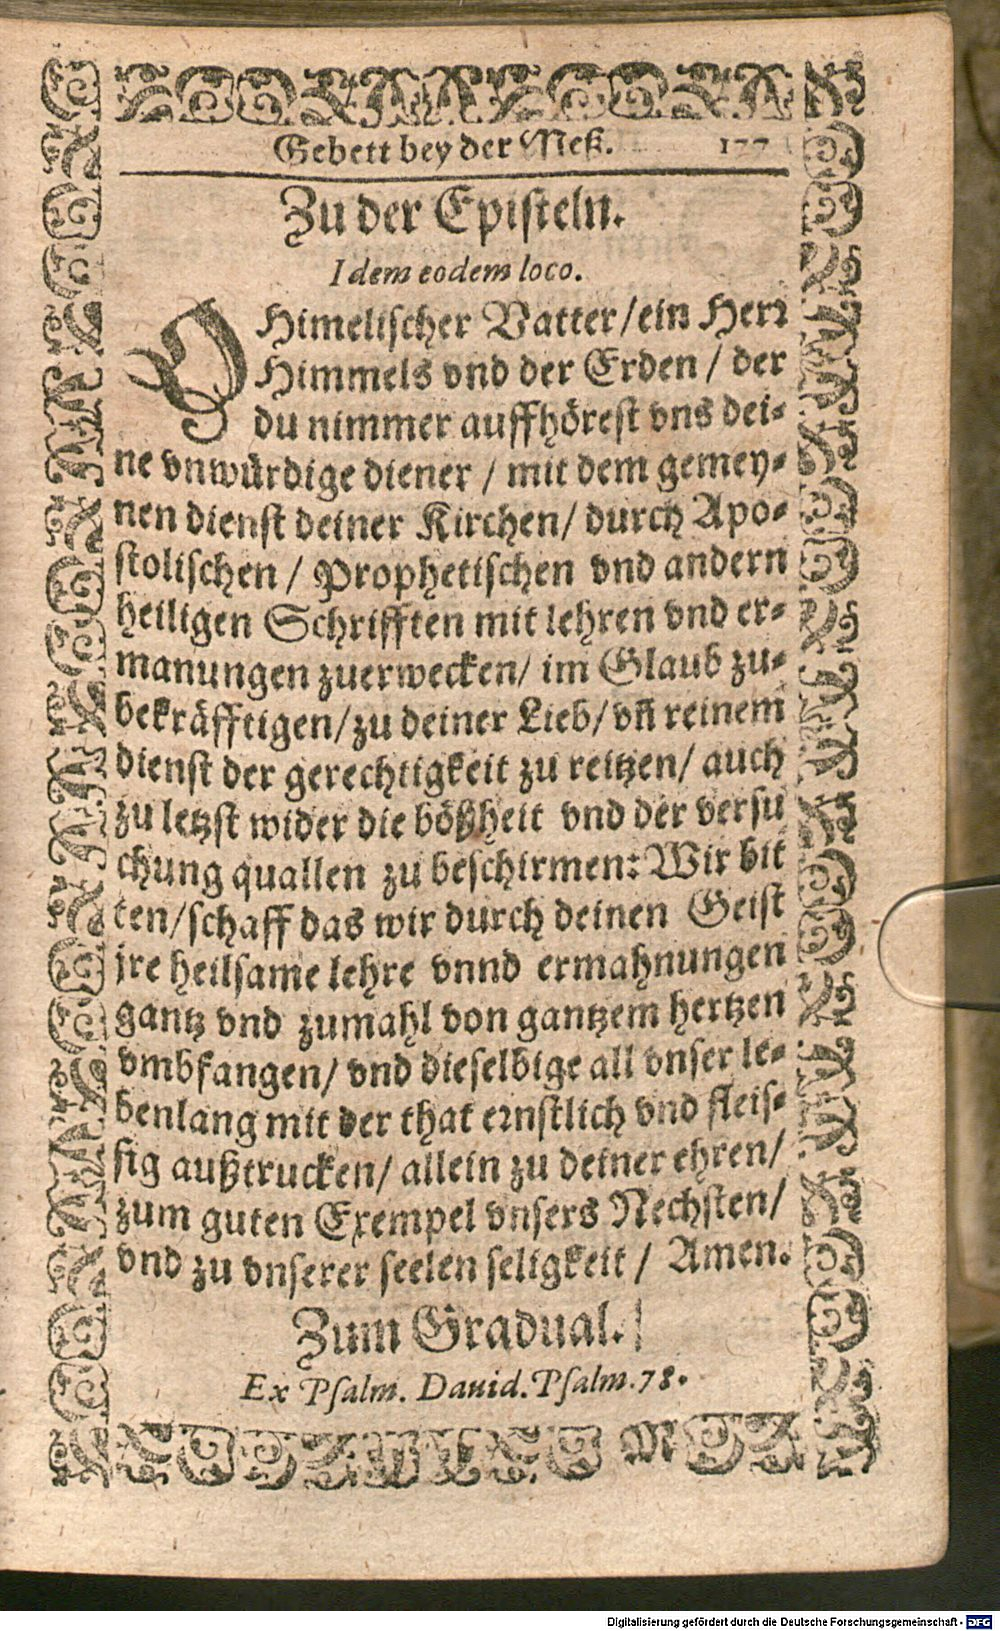 Gebett bey der Meß. 177
Zu der Episteln.
Idem eodem loco.
O Himelischer Vatter/ein Herr
Himmels vnd der Erden / der
du nimmer auffhörest vns dei-
ne vnwürdige diener / mit dem gemey-
nen dienst deiner Kirchen/ durch Apo-
stolischen / Prophetischen vnd andern
heiligen Schrifften mit lehren vnd er-
manungen zuerwecken/ im Glaub zu-
bekräfftigen/zu deiner Lieb/vñ reinem
dienst der gerechtigkeit zu reitzen/ auch
zu letzst wider die bößheit vnd der versu
chung quallen zu beschirmen: Wir bit
ten/schaff das wir durch deinen Geist
jre heilsame lehre vnnd ermahnungen
gantz vnd zumahl von gantzem hertzen
vmbfangen/ vnd dieselbige all vnser le-
benlang mit der that ernstlich vnd fleis-
sig außtrucken/ allein zu deiner ehren/
zum guten Exempel vnsers Nechsten/
vnd zu vnserer seelen seligkeit / Amen.
Zum Gradual.
Ex Psalm. Dauid. Psalm. 78.
M
Digitalisierung gefördert durch die Deutsche Forschungsgemeinschaft - DFG